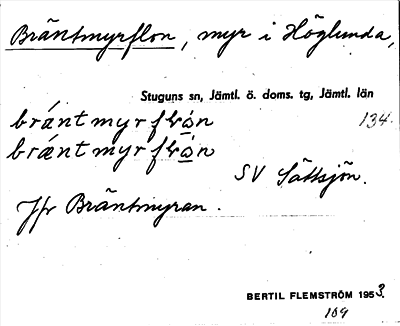 Bräntmyrflon, myr i Höglunda,
Stuguns sn, Jämtl. ö. doms. tg, Jämtl. län
bräntmyrflån 134.
bræntmyrflån
SV Sättsjön.
Jfr Bräntmyran.
BERTIL FLEMSTRÖM 1953.
109